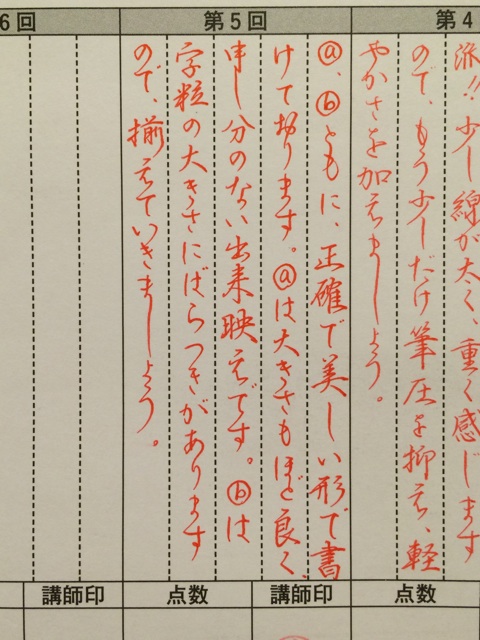 第4
派!!少し線が太く、重く感じます
ので、もう少しだけ筆圧を抑え、軽
やかさを加えましょう。
第5回
ⓐ、ⓑともに、正確で美しい形で書
けて打ります。ⓐは大きさもほど良く、
申し分のない出来映えです。ⓑは
字粒の大きさにばらつきがあります
ので、揃えていきましょう。
6回
点数
講師印
点数
講師印